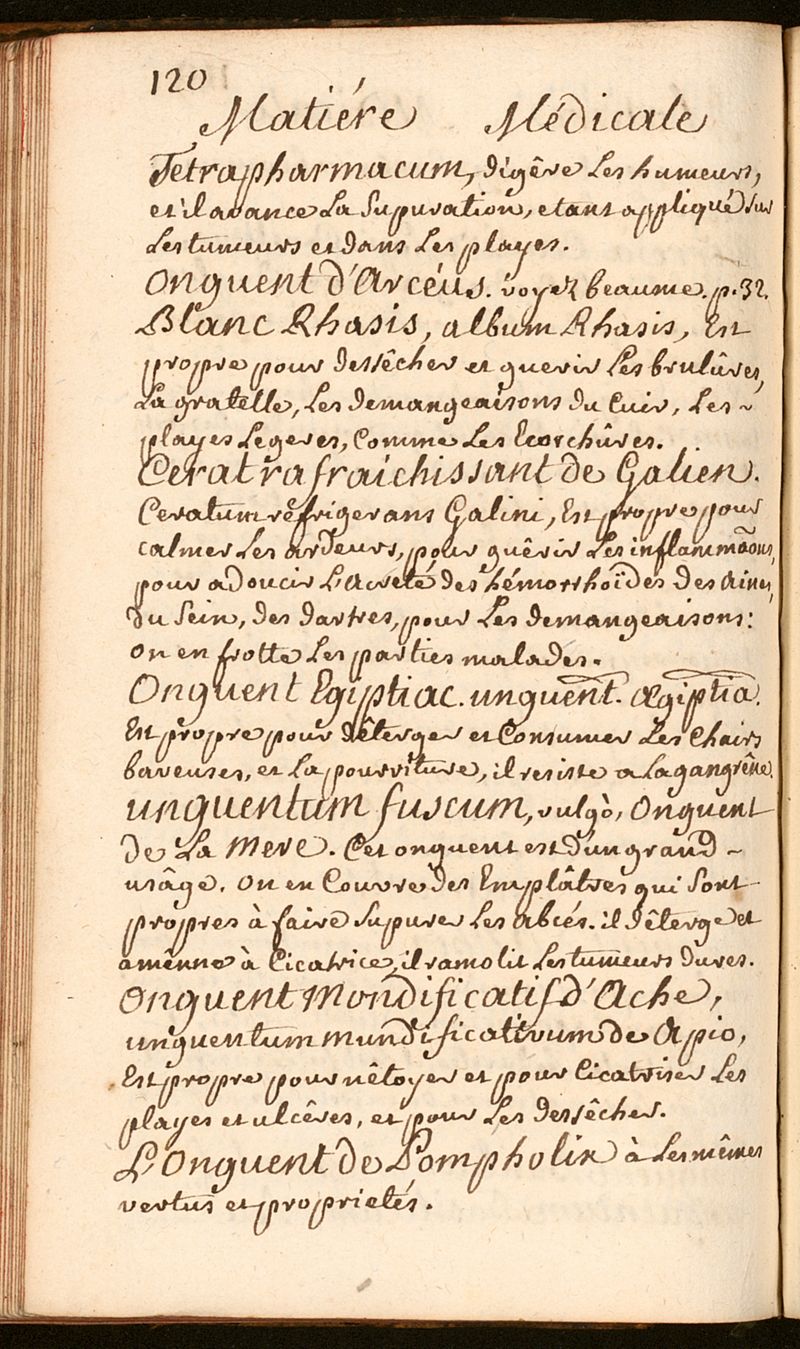 120
Matiére Médicale
Tetrapharmacum, digêre Les humeurs,
et il avance La Supuration, etant appliqué sur
Les tumeurs et dans Les playes.
Onguent d'Arcéus. voyez beaume. p. 32.
Blanc Rhasis, album Rhasis, Est
propre pour dessêcher et guerir Les brulûres,
La gratelle, Les demangeaisons du Cuir, Les ~
playes Legeres, Comme Les Ecorchûres.
Cerat rafraichissant de Galien.
Ceratum refrigerans Galini, Est propre pour
calmer Les ardeurs, pour guêrir Les inflammãons,
pour adoucir L'Acreté des hémorrhoïdes des Aines,
du Sein, des dartres, pour Les demangeaisons:
on en frotte Les parties malades.
Onguent Egiptiac. unguent. ægiptia.
Est propre pour dêterger et Consumer Les Chairs
baveuses, et La pourriture, il resiste a La gangrêne.
unguentum fuscum, vulgò, Onguent
de La Mere. Cet onguent est d'un grand ~
usâge. on en Couvre des Emplâtres qui Sont
propres à faire Supurer Les abcés. il dêterge et
amênne à Cicatrice, il ramolit Les tumeurs dures.
Onguent Mondificatif d'Ache,
unguentum mundificativum de Apio,
Est propre pour nêtoyer et pour Cicatriser Les
playes et ulcêres, et pour Les dessêcher.
L'Onguent de Pompholix à Les mêmes
vertus et proprietés.